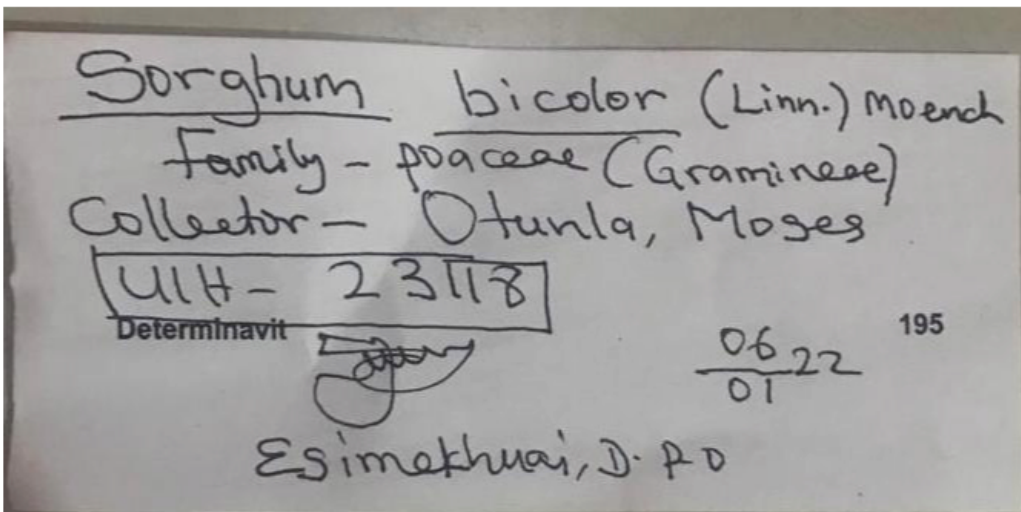 Sorghum bicolor (Linn.) Moench
Family - Poaceae (Gramineae)
Collector - Otunla, Moses
UIH - 23118
Determinavit
195
06/01 22
Esimekhuai, D. P. O